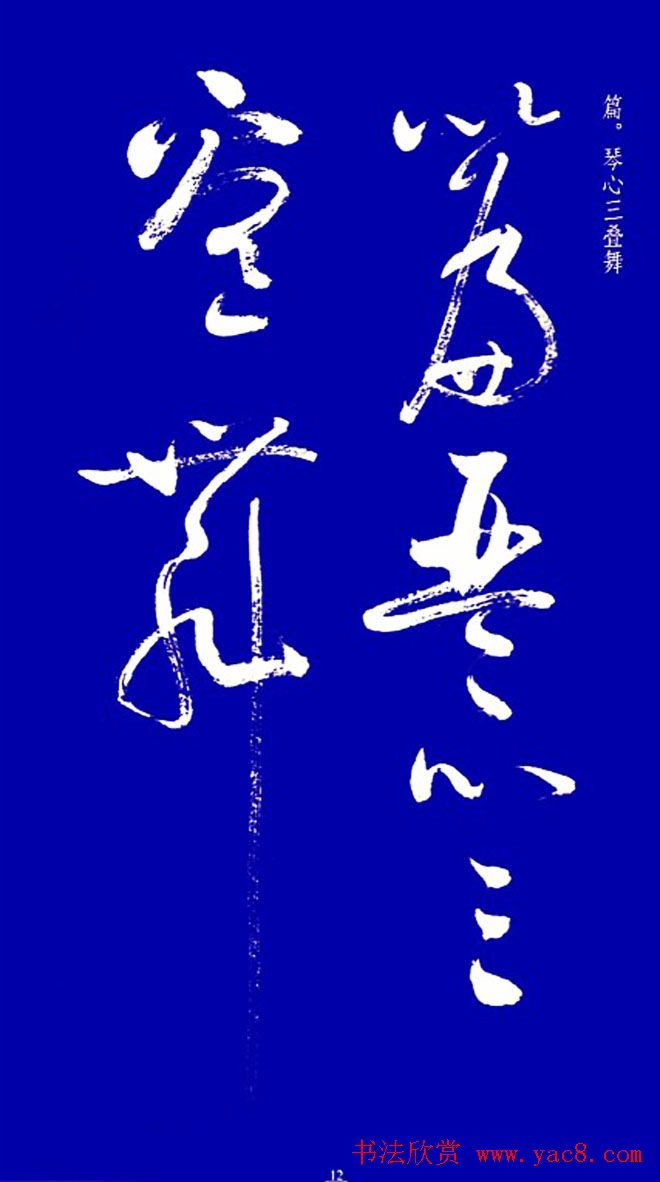 篇。琴心三叠舞
篇琴心三
叠舞
12
书法欣赏 www.yac8.com